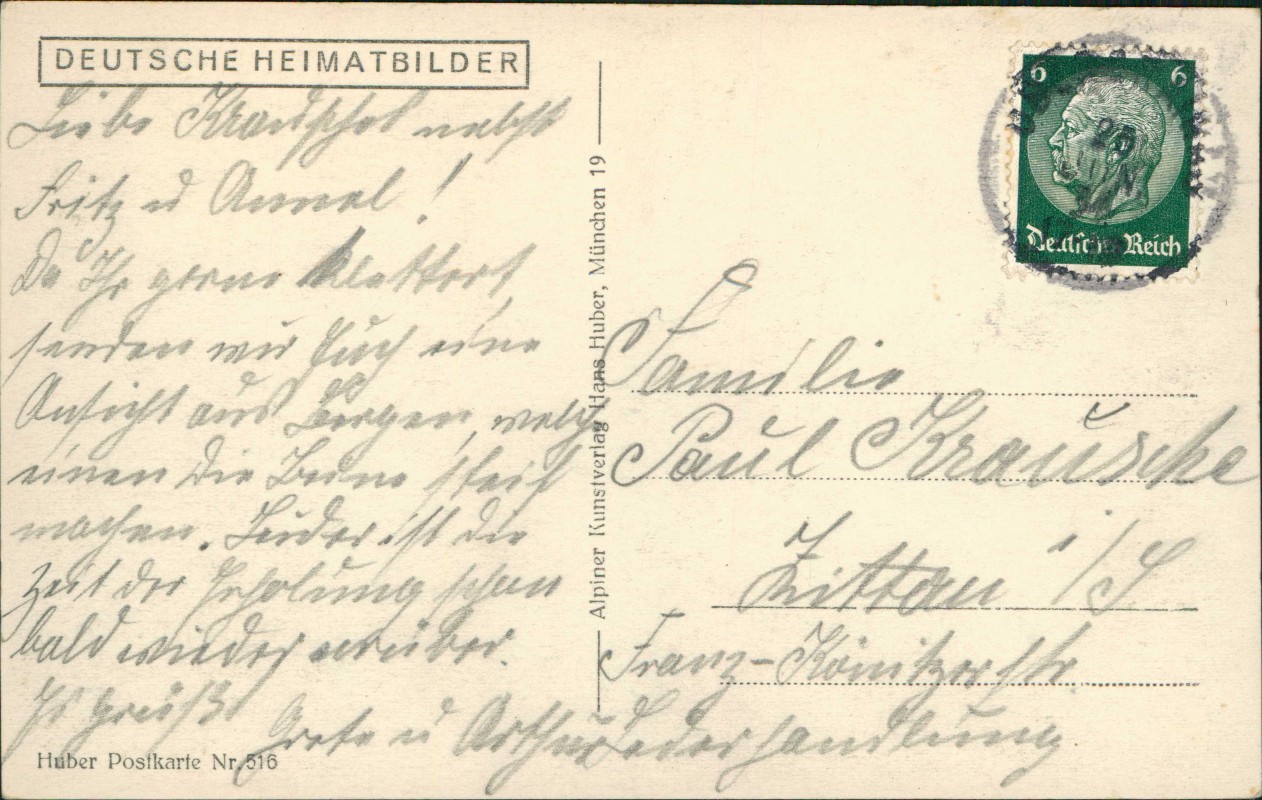 DEUTSCHE HEIMATBILDER
Liebe Krauschel nebst
Fritz u Annel!
Da Ihr gerne klettert,
senden wir Euch eine
Ansicht aus Bergen, welche
einem die Beine steif
machen. Leider ist die
Zeit der Erholung schon
bald wieder vorüber.
Es grüßt
Grete u Arthur
Huber Postkarte Nr. 516
Alpiner Kunstverlag Hans Huber, München 19
6 6
25
JUN
Deutsches Reich
Familie
Paul Krauschke
Zittau i/S
Franz-Könitzerstr
Lederhandlung